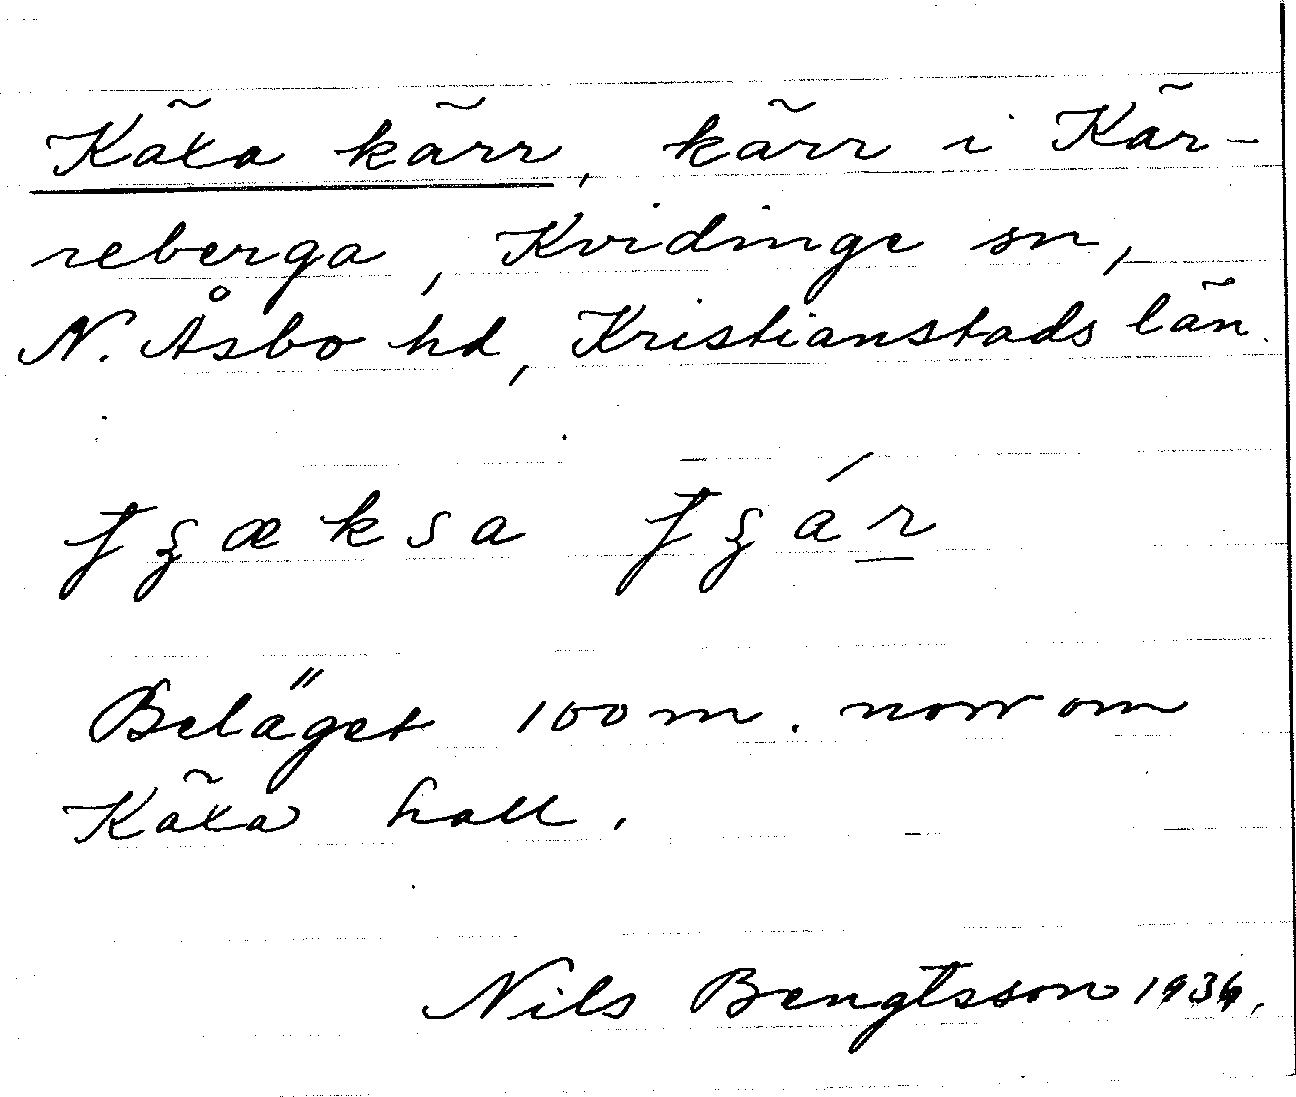 Käxa kärr, kärr i Kär-
reberga, Kvidinge sn,
N. Åsbo hd, Kristianstads län.
Beläget 100 m. norr om
Käxa hall.
Nils Bengtsson